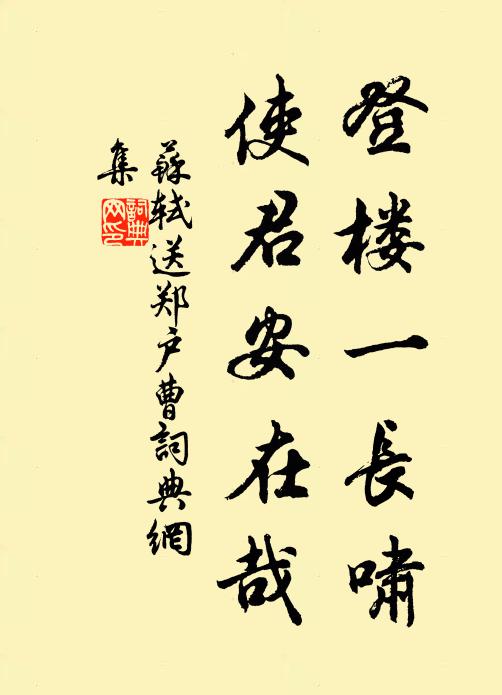 登楼一長嘯
使君安在哉
蘇軾送郑户曹詞典網
集
詞典
网印